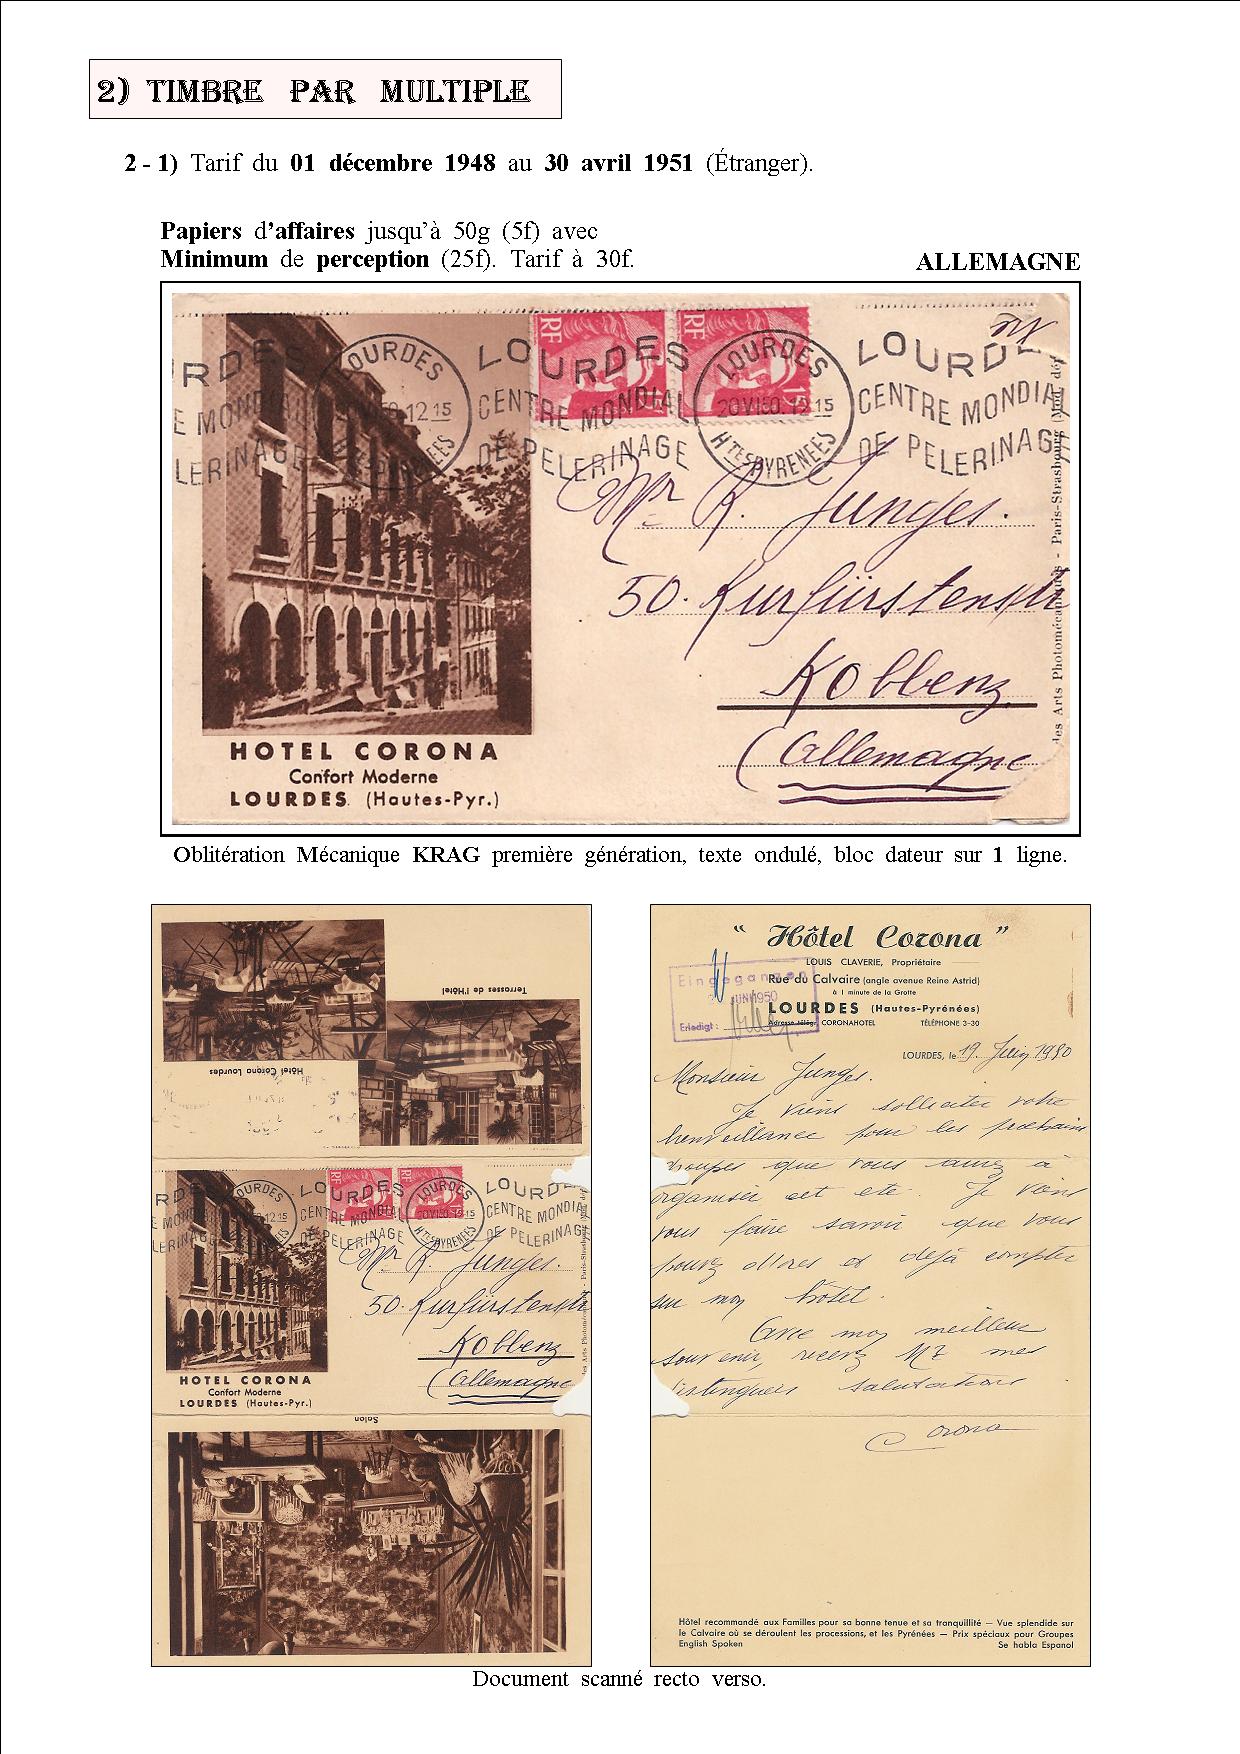 2) TIMBRE PAR MULTIPLE
2 - 1) Tarif du 01 décembre 1948 au 30 avril 1951 (Étranger).
Papiers d'affaires jusqu'à 50g (5f) avec
Minimum de perception (25f). Tarif à 30f.
ALLEMAGNE
LOURDES
CENTRE MONDIAL
DE PELERINAGE
LOURDES
20 VI 50. 12 15
Htes PYRENEES
RF
RF
Mr R. Junges.
50. Kurfürstenstr
Koblenz
(Allemagne
HOTEL CORONA
Confort Moderne
LOURDES (Hautes-Pyr.)
des Arts Photomécaniques - Paris-Strasbourg (Mod. dép
Oblitération Mécanique KRAG première génération, texte ondulé, bloc dateur sur 1 ligne.
Terrasses de l'Hôtel
Hôtel Corona Lourdes
LOURDES
CENTRE MONDIAL
DE PELERINAGE
LOURDES
20 VI 50. 12 15
Htes PYRENEES
RF
RF
Mr R. Junges.
50. Kurfürstenstr
Koblenz
(Allemagne
HOTEL CORONA
Confort Moderne
LOURDES (Hautes-Pyr.)
Salon
“ Hôtel Corona ”
LOUIS CLAVERIE, Propriétaire
Rue du Calvaire (angle avenue Reine Astrid)
à 1 minute de la Grotte
LOURDES (Hautes-Pyrénées)
Adresse télégr. CORONAHOTEL TÉLÉPHONE 3-30
Eingegangen
JUNI 1950
Erledigt:
LOURDES, le 19 Juin 1950
Monsieur Junges.
Je viens solliciter votre
bienveillance pour les prochains
troupes que vous aurez à
organiser cet été. Je viens
vous faire savoir que vous
pouvez d'ores et déjà compter
sur mon hôtel.
Avec mes meilleurs
souvenirs, recevez Mr mes
distingueés salutations
Corona
Hôtel recommandé aux Familles pour sa bonne tenue et sa tranquillité — Vue splendide sur
le Calvaire où se déroulent les processions, et les Pyrénées — Prix spéciaux pour Groupes
English Spoken Se habla Espanol
Document scanné recto verso.